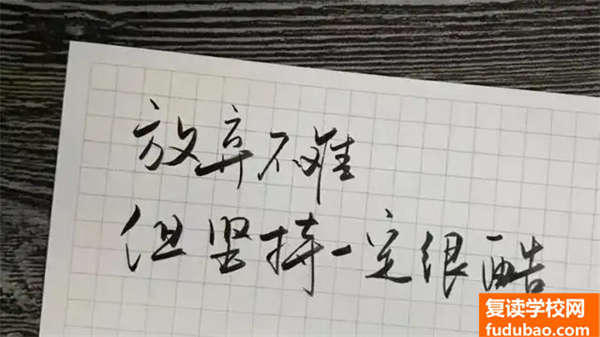 放弃不难
但坚持一定很酷
复读学校网
fudubao.com